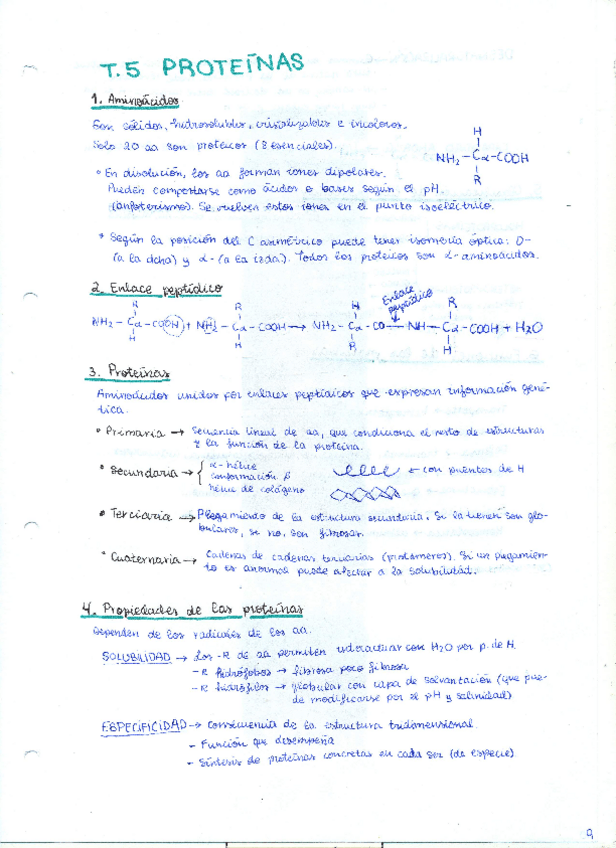 T.5 PROTEÍNAS
1. Aminoácidos
Son sólidos, hidrosolubles, cristalizables e incoloros.
Solo 20 aa son proteicos (8 esenciales).
H
NH2 - Cα - COOH
R
• En disolución, los aa forman iones dipolares.
Pueden comportarse como ácidos o bases según el pH.
(anfoterismo). Se vuelven estos iones en el punto isoeléctrico.
• Según la posición del C asimétrico puede tener isomería óptica: D-
(a la dcha) y α- (a la izda). Todos los proteicos son α-aminoácidos.
2. Enlace peptídico
R R H Enlace peptídico R
NH2 - Cα - COOH + NH2 - Cα - COOH → NH2 - Cα - CO - NH - Cα - COOH + H2O
H H R H
3. Proteínas
Aminoácidos unidos por enlaces peptídicos que expresan información gené-
tica.
• Primaria → Secuencia lineal de aa, que condiciona el resto de estructuras
y la función de la proteína.
• Secundaria → { α-hélice
conformación β
hélice de colágeno
← con puentes de H
• Terciaria → Plegamiento de la estructura secundaria. Si la tienen son glo-
bulares, si no, son fibrosas.
• Cuaternaria → Cadenas de cadenas terciarias (protómeros). Si un pegamien-
to es anormal puede afectar a la solubilidad.
4. Propiedades de las proteínas
Dependen de los radicales de los aa.
SOLUBILIDAD → Los -R de aa permiten interactuar con H2O por p. de H.
- R hidrófobos → fibrosa poco fibrosa
- R hidrófilos → globular con capa de solvantación (que pue-
de modificarse por el pH y salinidad)
ESPECIFICIDAD → consecuencia de la estructura tridimensional
- Función que desempeña
- Síntesis de proteínas concretas en cada ser (de especie)
9